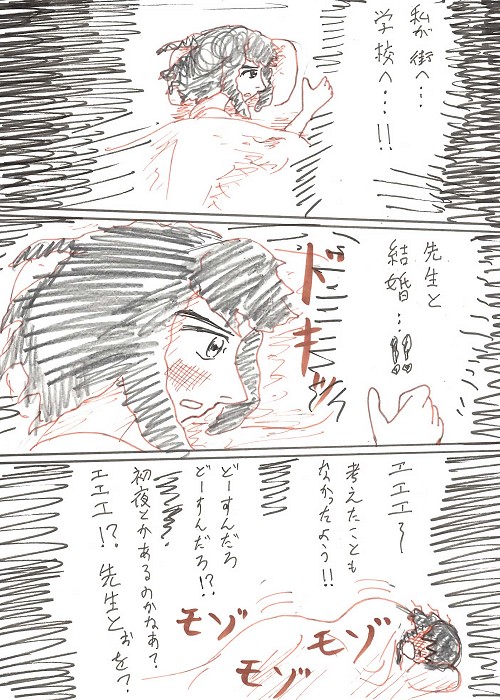 私が街へ…
学校へ…!!
先生と
結婚…!!
ドキッ
エエエ〜
考えたことも
なかったよう!!
どーすんだろ
どーすんだろ!?
初夜とかあるのかなあ?
エエエ!?先生とおを?
モゾ
モゾ
モゾ